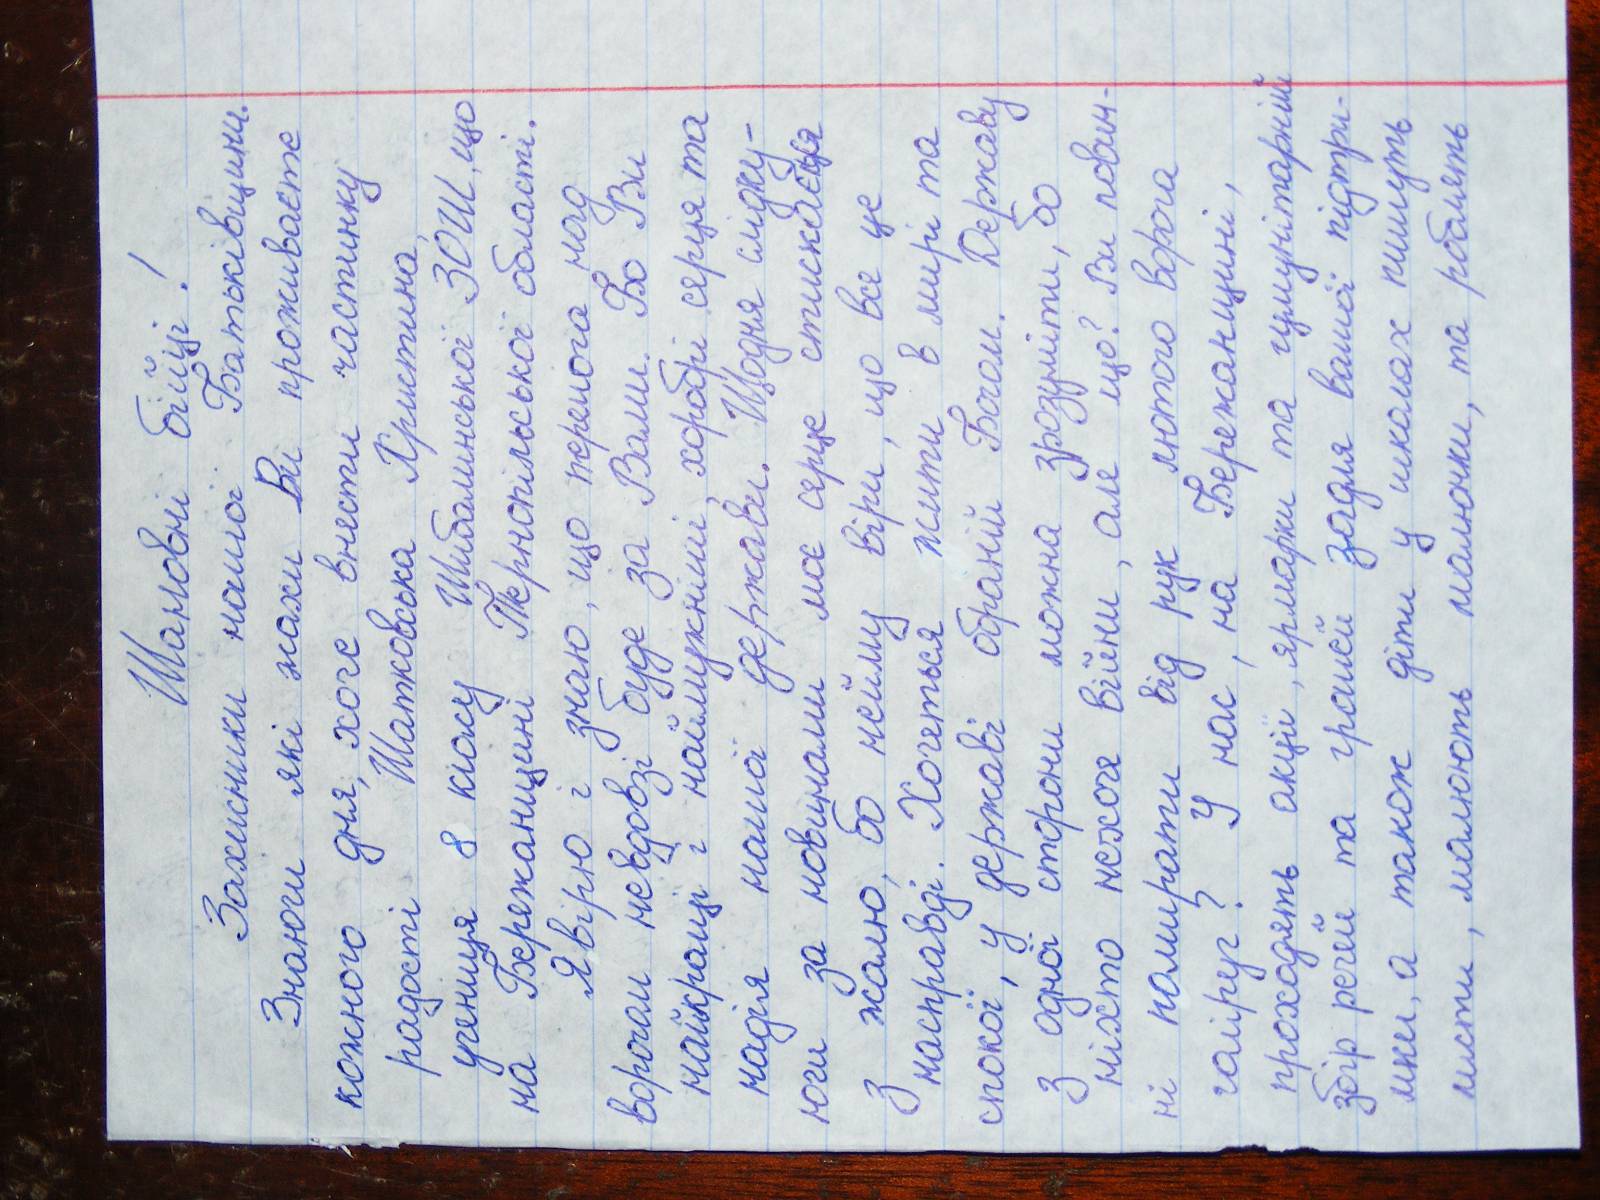 Шановні бійці!
Захисники нашої Батьківщини.
Знаючи які жахи Ви проживаєте
кожного дня, хоче внести частинку
радості Шатковська Христина,
учениця 8 класу Шибалинської ЗОШ, що
на Бережанщині Тернопільської області.
Я вірю і знаю, що перемога над
ворогам невдовзі буде за Вами. Бо Ви
найкращі і наймужніші, хоробрі серця та
надія нашої держави. Щодня слідку-
ючи за новинами моє серце стискається
з жалю, бо нейму віри, що все це
насправді. Хочеться жити в мирі та
спокої, у державі обраній Богом. Державу
з одної сторони можна зрозуміти, бо
ніхто нехоче війни, але що? Ви повин-
ні помирати від рук лютого ворога
гаїруг? У нас, на Бережанщині,
проходять акції, ярмарки та гуманітарний
збір речей та грошей задля вашої підтри-
мки, а також діти у школах пишуть
листи, малюють малюнки, та роблять